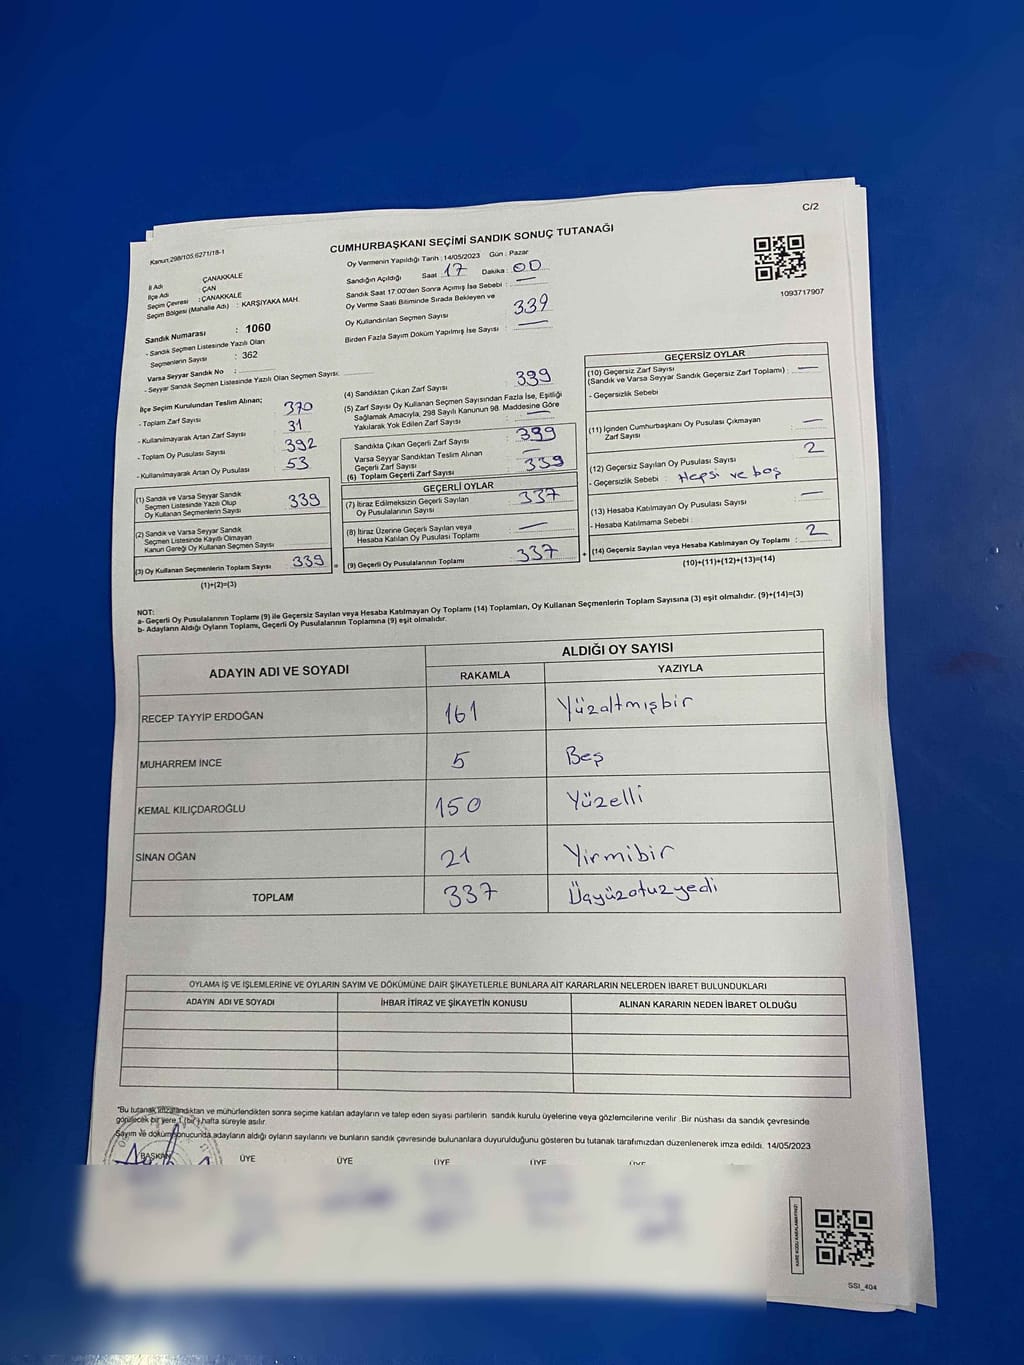 C/2
Kanun,298/105,6271/18-1
CUMHURBAŞKANI SEÇİMİ SANDIK SONUÇ TUTANAĞI
Oy Vermenin Yapıldığı Tarih : 14/05/2023 Gün : Pazar
İl Adı : ÇANAKKALE
İlçe Adı : ÇAN
Seçim Çevresi : ÇANAKKALE
Seçim Bölgesi (Mahalle Adı) : KARŞIYAKA MAH.
Sandığın Açıldığı Saat : 17 Dakika : 00
Sandık Saat 17:00'den Sonra Açımış İse Sebebi : —
Oy Verme Saati Bitiminde Sırada Bekleyen ve
Oy Kullandırılan Seçmen Sayısı : 339
Birden Fazla Sayım Döküm Yapılmış İse Sayısı : —
1093717907
Sandık Numarası : 1060
- Sandık Seçmen Listesinde Yazılı Olan
Seçmenlerin Sayısı : 362
Varsa Seyyar Sandık No :
- Seyyar Sandık Seçmen Listesinde Yazılı Olan Seçmen Sayısı:
İlçe Seçim Kurulundan Teslim Alınan;
- Toplam Zarf Sayısı 370
- Kullanılmayarak Artan Zarf Sayısı 31
- Toplam Oy Pusulası Sayısı 392
- Kullanılmayarak Artan Oy Pusulası 53
(1) Sandık ve Varsa Seyyar Sandık
Seçmen Listesinde Yazılı Olup
Oy Kullanan Seçmenlerin Sayısı 339
(2) Sandık ve Varsa Seyyar Sandık
Seçmen Listesinde Kayıtlı Olmayan
Kanun Gereği Oy Kullanan Seçmen Sayısı
(3) Oy Kullanan Seçmenlerin Toplam Sayısı 339 =
(1)+(2)=(3)
(4) Sandıktan Çıkan Zarf Sayısı : 339
(5) Zarf Sayısı Oy Kullanan Seçmen Sayısından Fazla İse, Eşitliği
Sağlamak Amacıyla, 298 Sayılı Kanunun 98. Maddesine Göre
Yakılarak Yok Edilen Zarf Sayısı : —
Sandıkta Çıkan Geçerli Zarf Sayısı : 339
Varsa Seyyar Sandıktan Teslim Alınan
Geçerli Zarf Sayısı : —
(6) Toplam Geçerli Zarf Sayısı : 339
GEÇERLİ OYLAR
(7) İtiraz Edilmeksizin Geçerli Sayılan
Oy Pusulalarının Sayısı : 337
(8) İtiraz Üzerine Geçerli Sayılan veya
Hesaba Katılan Oy Pusulası Toplamı : —
(9) Geçerli Oy Pusulalarının Toplamı : 337 +
GEÇERSİZ OYLAR
(10) Geçersiz Zarf Sayısı
(Sandık ve Varsa Seyyar Sandık Geçersiz Zarf Toplamı) : —
- Geçersizlik Sebebi :
(11) İçinden Cumhurbaşkanı Oy Pusulası Çıkmayan
Zarf Sayısı : —
(12) Geçersiz Sayılan Oy Pusulası Sayısı : 2
- Geçersizlik Sebebi : Hepsi ve boş
(13) Hesaba Katılmayan Oy Pusulası Sayısı : —
- Hesaba Katılmama Sebebi :
(14) Geçersiz Sayılan veya Hesaba Katılmayan Oy Toplamı : 2
(10)+(11)+(12)+(13)=(14)
NOT:
a- Geçerli Oy Pusulalarının Toplamı (9) ile Geçersiz Sayılan veya Hesaba Katılmayan Oy Toplamı (14) Toplamları, Oy Kullanan Seçmenlerin Toplam Sayısına (3) eşit olmalıdır. (9)+(14)=(3)
b- Adayların Aldığı Oyların Toplamı, Geçerli Oy Pusulalarının Toplamına (9) eşit olmalıdır.
ADAYIN ADI VE SOYADI ALDIĞI OY SAYISI
RAKAMLA YAZIYLA
RECEP TAYYİP ERDOĞAN 161 Yüzaltmışbir
MUHARREM İNCE 5 Beş
KEMAL KILIÇDAROĞLU 150 Yüzelli
SİNAN OĞAN 21 Yirmibir
TOPLAM 337 Üçyüzotuzyedi
OYLAMA İŞ VE İŞLEMLERİNE VE OYLARIN SAYIM VE DÖKÜMÜNE DAİR ŞİKAYETLERLE BUNLARA AİT KARARLARIN NELERDEN İBARET BULUNDUKLARI
ADAYIN ADI VE SOYADI İHBAR İTİRAZ VE ŞİKAYETİN KONUSU ALINAN KARARIN NEDEN İBARET OLDUĞU
*Bu tutanak imzalandıktan ve mühürlendikten sonra seçime katılan adayların ve talep eden siyasi partilerin sandık kurulu üyelerine veya gözlemcilerine verilir .Bir nüshası da sandık çevresinde
görülecek bir yere 1 (bir) hafta süreyle asılır.
Sayım ve döküm sonucunda adayların aldığı oyların sayılarını ve bunların sandık çevresinde bulunanlara duyurulduğunu gösteren bu tutanak tarafımızdan düzenlenerek imza edildi. 14/05/2023
BAŞKAN ÜYE ÜYE ÜYE ÜYE ÜYE
KARE KODU KARALAMAYINIZ!
SSI_404